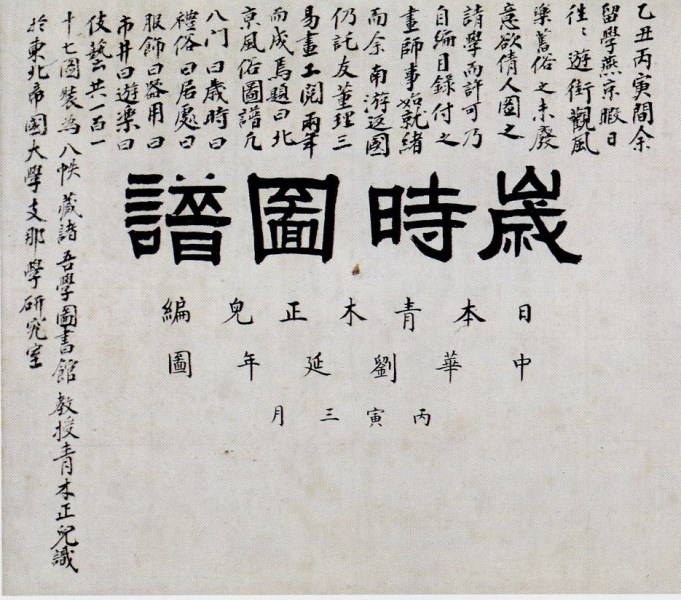 乙丑丙寅間余
留學燕京暇日
徃〻遊街觀風
樂舊俗之未廢
意欲倩人圖之
請學而許可乃
自編目錄付之
畫師事始就緒
而余南游返國
仍託友董理三
易畫工閱兩年
而成焉題曰北
京風俗圖譜凡
八门曰歲時曰
禮俗曰居處曰
服飾曰器用曰
市井曰遊樂曰
伎藝共一百一
十七圖裝為八帙藏諸吾學圖書館教授青木正兒識
於東北帝國大學支那學研究室
歲時圖譜
日本青木正兒編
中華劉延年圖
丙寅三月